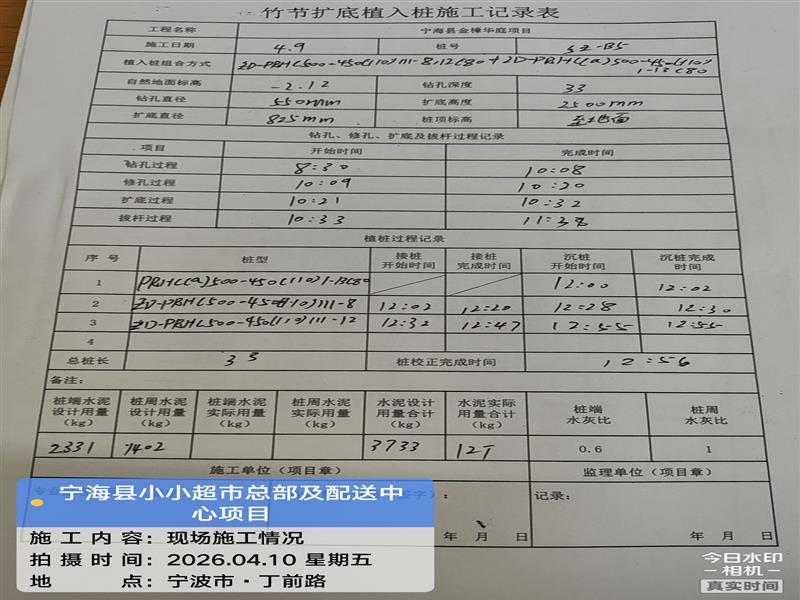 竹节扩底植入桩施工记录表
工程名称 宁海县金樟华庭项目
施工日期 4.9 桩号 S2-B5
植入桩组合方式 ZD-PRHC500-450(110)III-8,12C80+ZD-PRHC(a)500-450(110)
I-13C80
自然地面标高 -2.12 钻孔深度 33
钻孔直径 550mm 扩底高度 2500mm
扩底直径 825mm 桩顶标高 至地面
钻孔、修孔、扩底及拔杆过程记录
项目 开始时间 完成时间
钻孔过程 8:30 10:08
修孔过程 10:09 10:20
扩底过程 10:21 10:32
拔杆过程 10:33 11:38
植桩过程记录
序号 桩型 接桩开始时间 接桩完成时间 沉桩开始时间 沉桩完成时间
1 PRHC(a)500-450(110)I-13C80 12:00 12:02
2 ZD-PRHC500-450(110)III-8 12:02 12:20 12:28 12:30
3 ZD-PRHC500-450(110)III-12 12:32 12:47 12:55 12:55
4
总桩长 33 桩校正完成时间 12:56
备注:
桩端水泥设计用量(kg) 桩周水泥设计用量(kg) 桩端水泥实际用量(kg) 桩周水泥实际用量(kg) 水泥设计用量合计(kg) 水泥实际用量合计(kg) 桩端水灰比 桩周水灰比
2331 1402 3733 12T 0.6 1
施工单位(项目章) 监理单位(项目章)
字): 记录:
年 月 日 年 月 日
宁海县小小超市总部及配送中
心项目
施工内容:现场施工情况
拍摄时间:2026.04.10 星期五
地点:宁波市·丁前路
今日水印
相机
真实时间